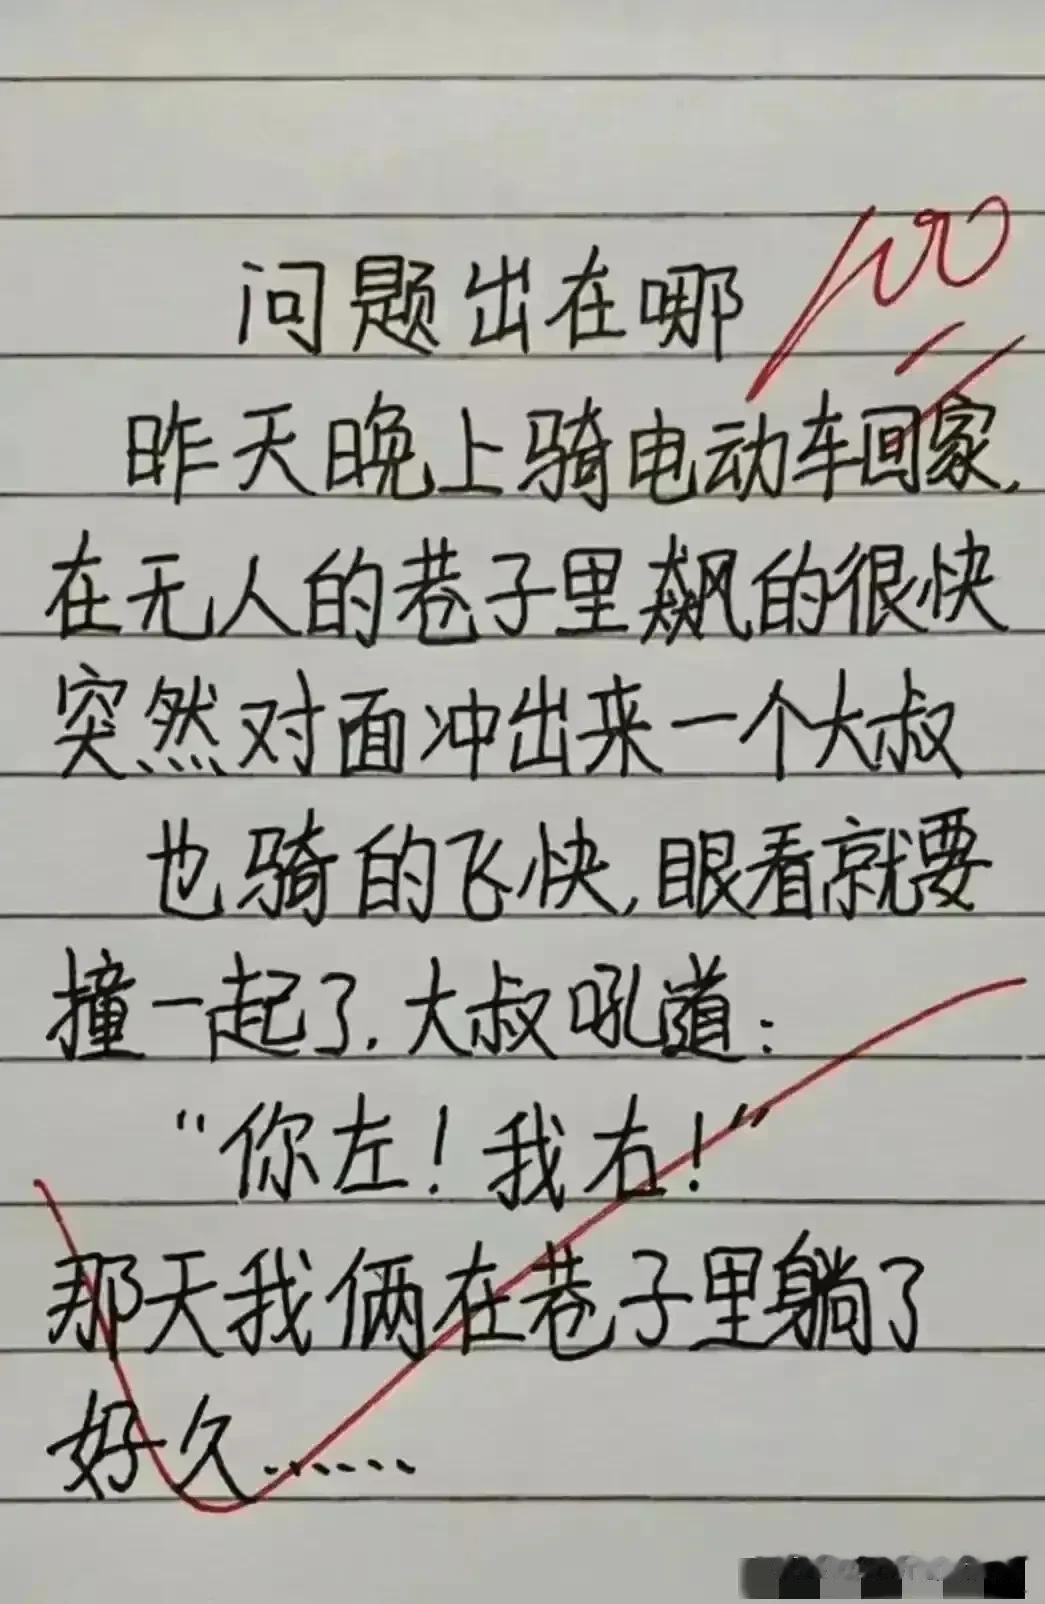 问题出在哪
100
昨天晚上骑电动车回家,
在无人的巷子里飙的很快
突然对面冲出来一个大叔
也骑的飞快,眼看就要
撞一起了.大叔吼道:
“你左!我右!”
那天我俩在巷子里躺了
好久……